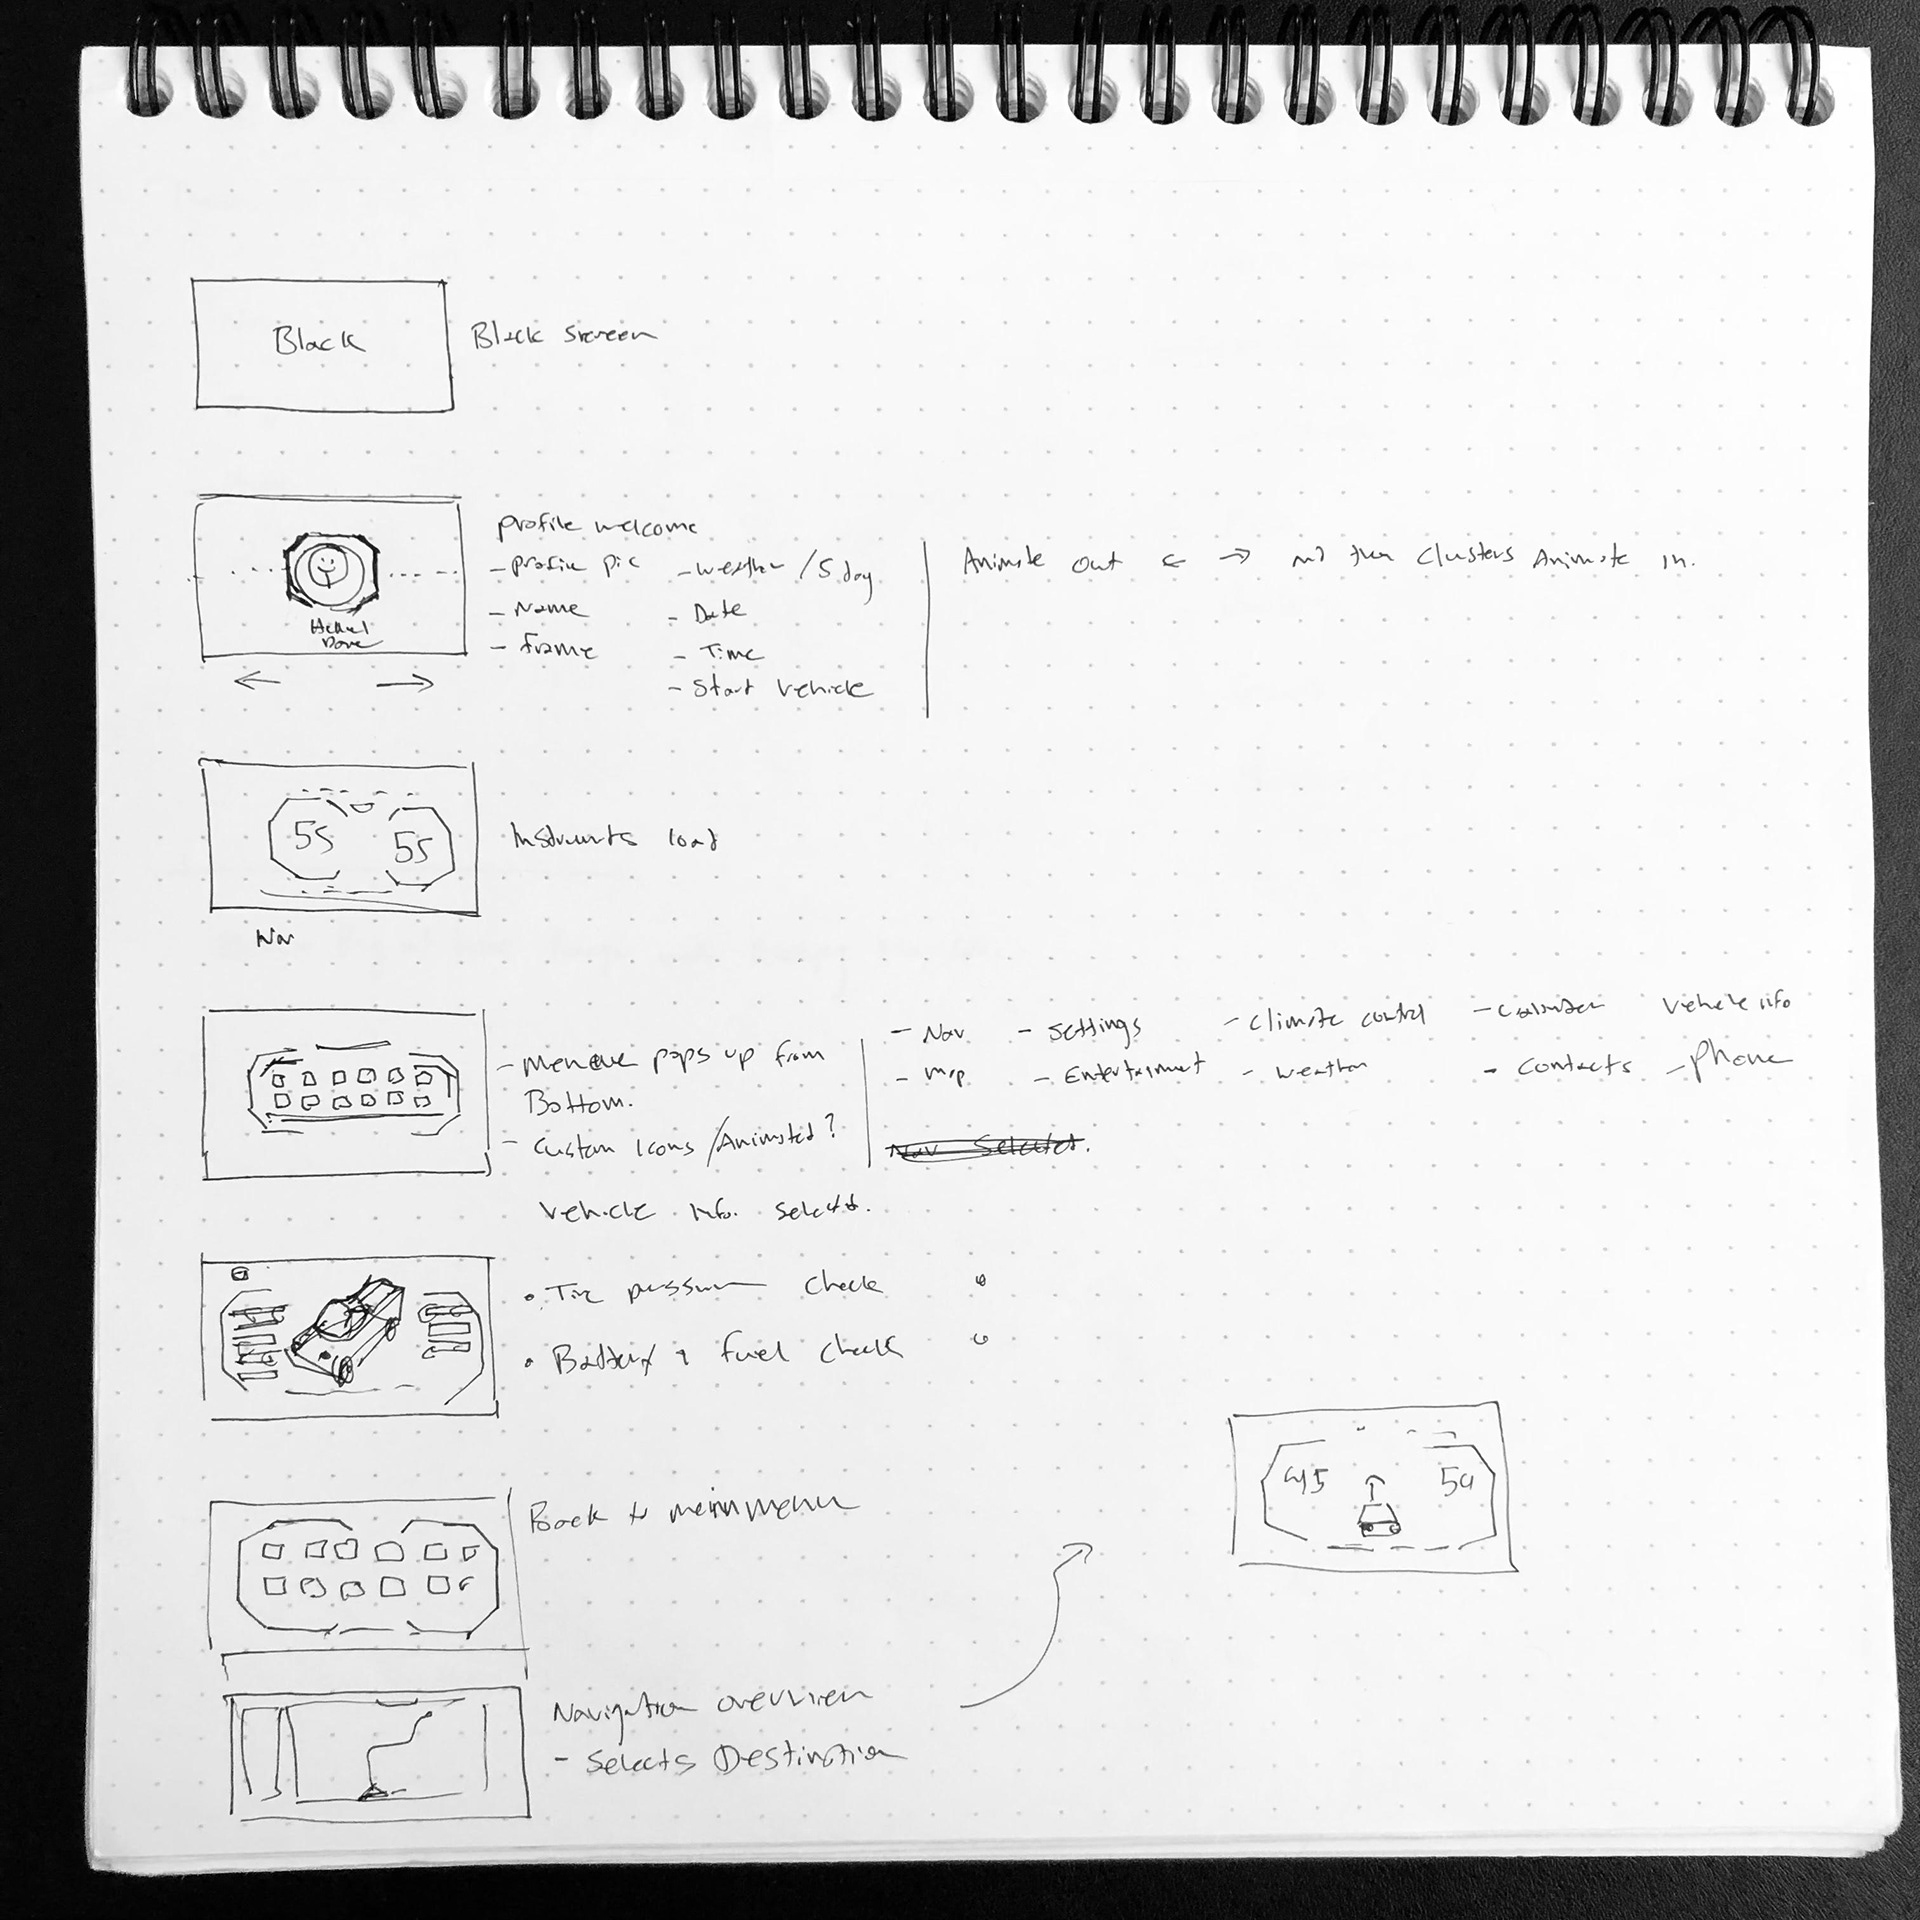 Black
Black screen
profile welcome
- profile pic
- weather / 5 day
- Name
- Date
- frame
- Time
- Start vehicle
Animate out ← → and then clusters Animate in.
Dave
55
55
Instruments load
Nav
- Menue pops up from
Bottom.
- custom Icons / Animated?
- Nav
- settings
- climate control
- calendar
vehicle info
- map
- Entertainment
- weather
- contacts
- phone
Nav Selected.
vehicle info. selected.
• Tire pressure check
• Battery & fuel check
45
Back to main menu
Navigation overview
- selects Destination